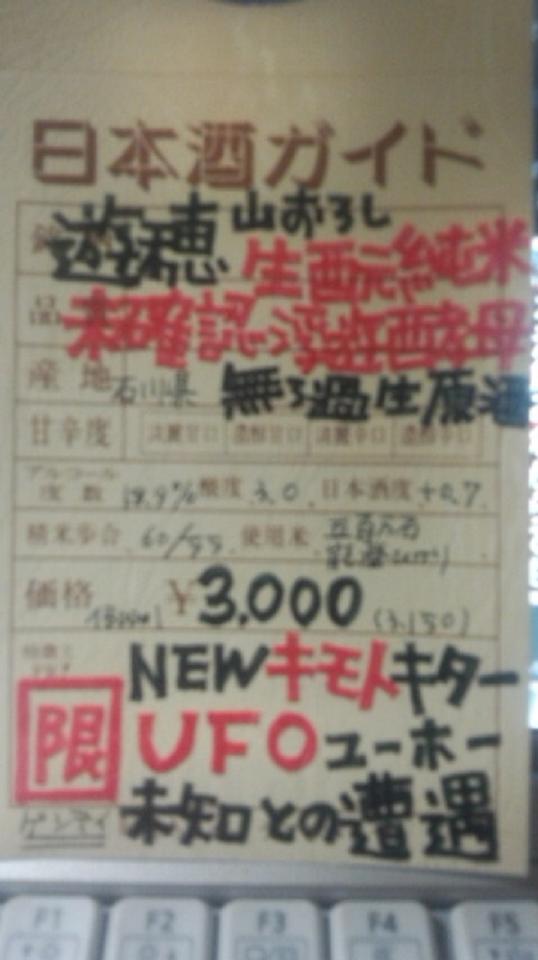 日本酒ガイド
遊穂 山おろし
生酛純米
未確認浮遊酵母
産地 石川県 無ろ過生原酒
甘辛度 淡麗甘口 濃醇甘口 淡麗辛口 濃醇辛口
アルコール度数 19.9% 酸度 3.0 日本酒度 +0.7
精米歩合 60/55 使用米 五百万石
価格 1800ml ¥3,000 (3,150)
NEWキモトキター
限 UFOユーホー
ゲンテイ 未知との遭遇
F1 F2 F3 F4 F5